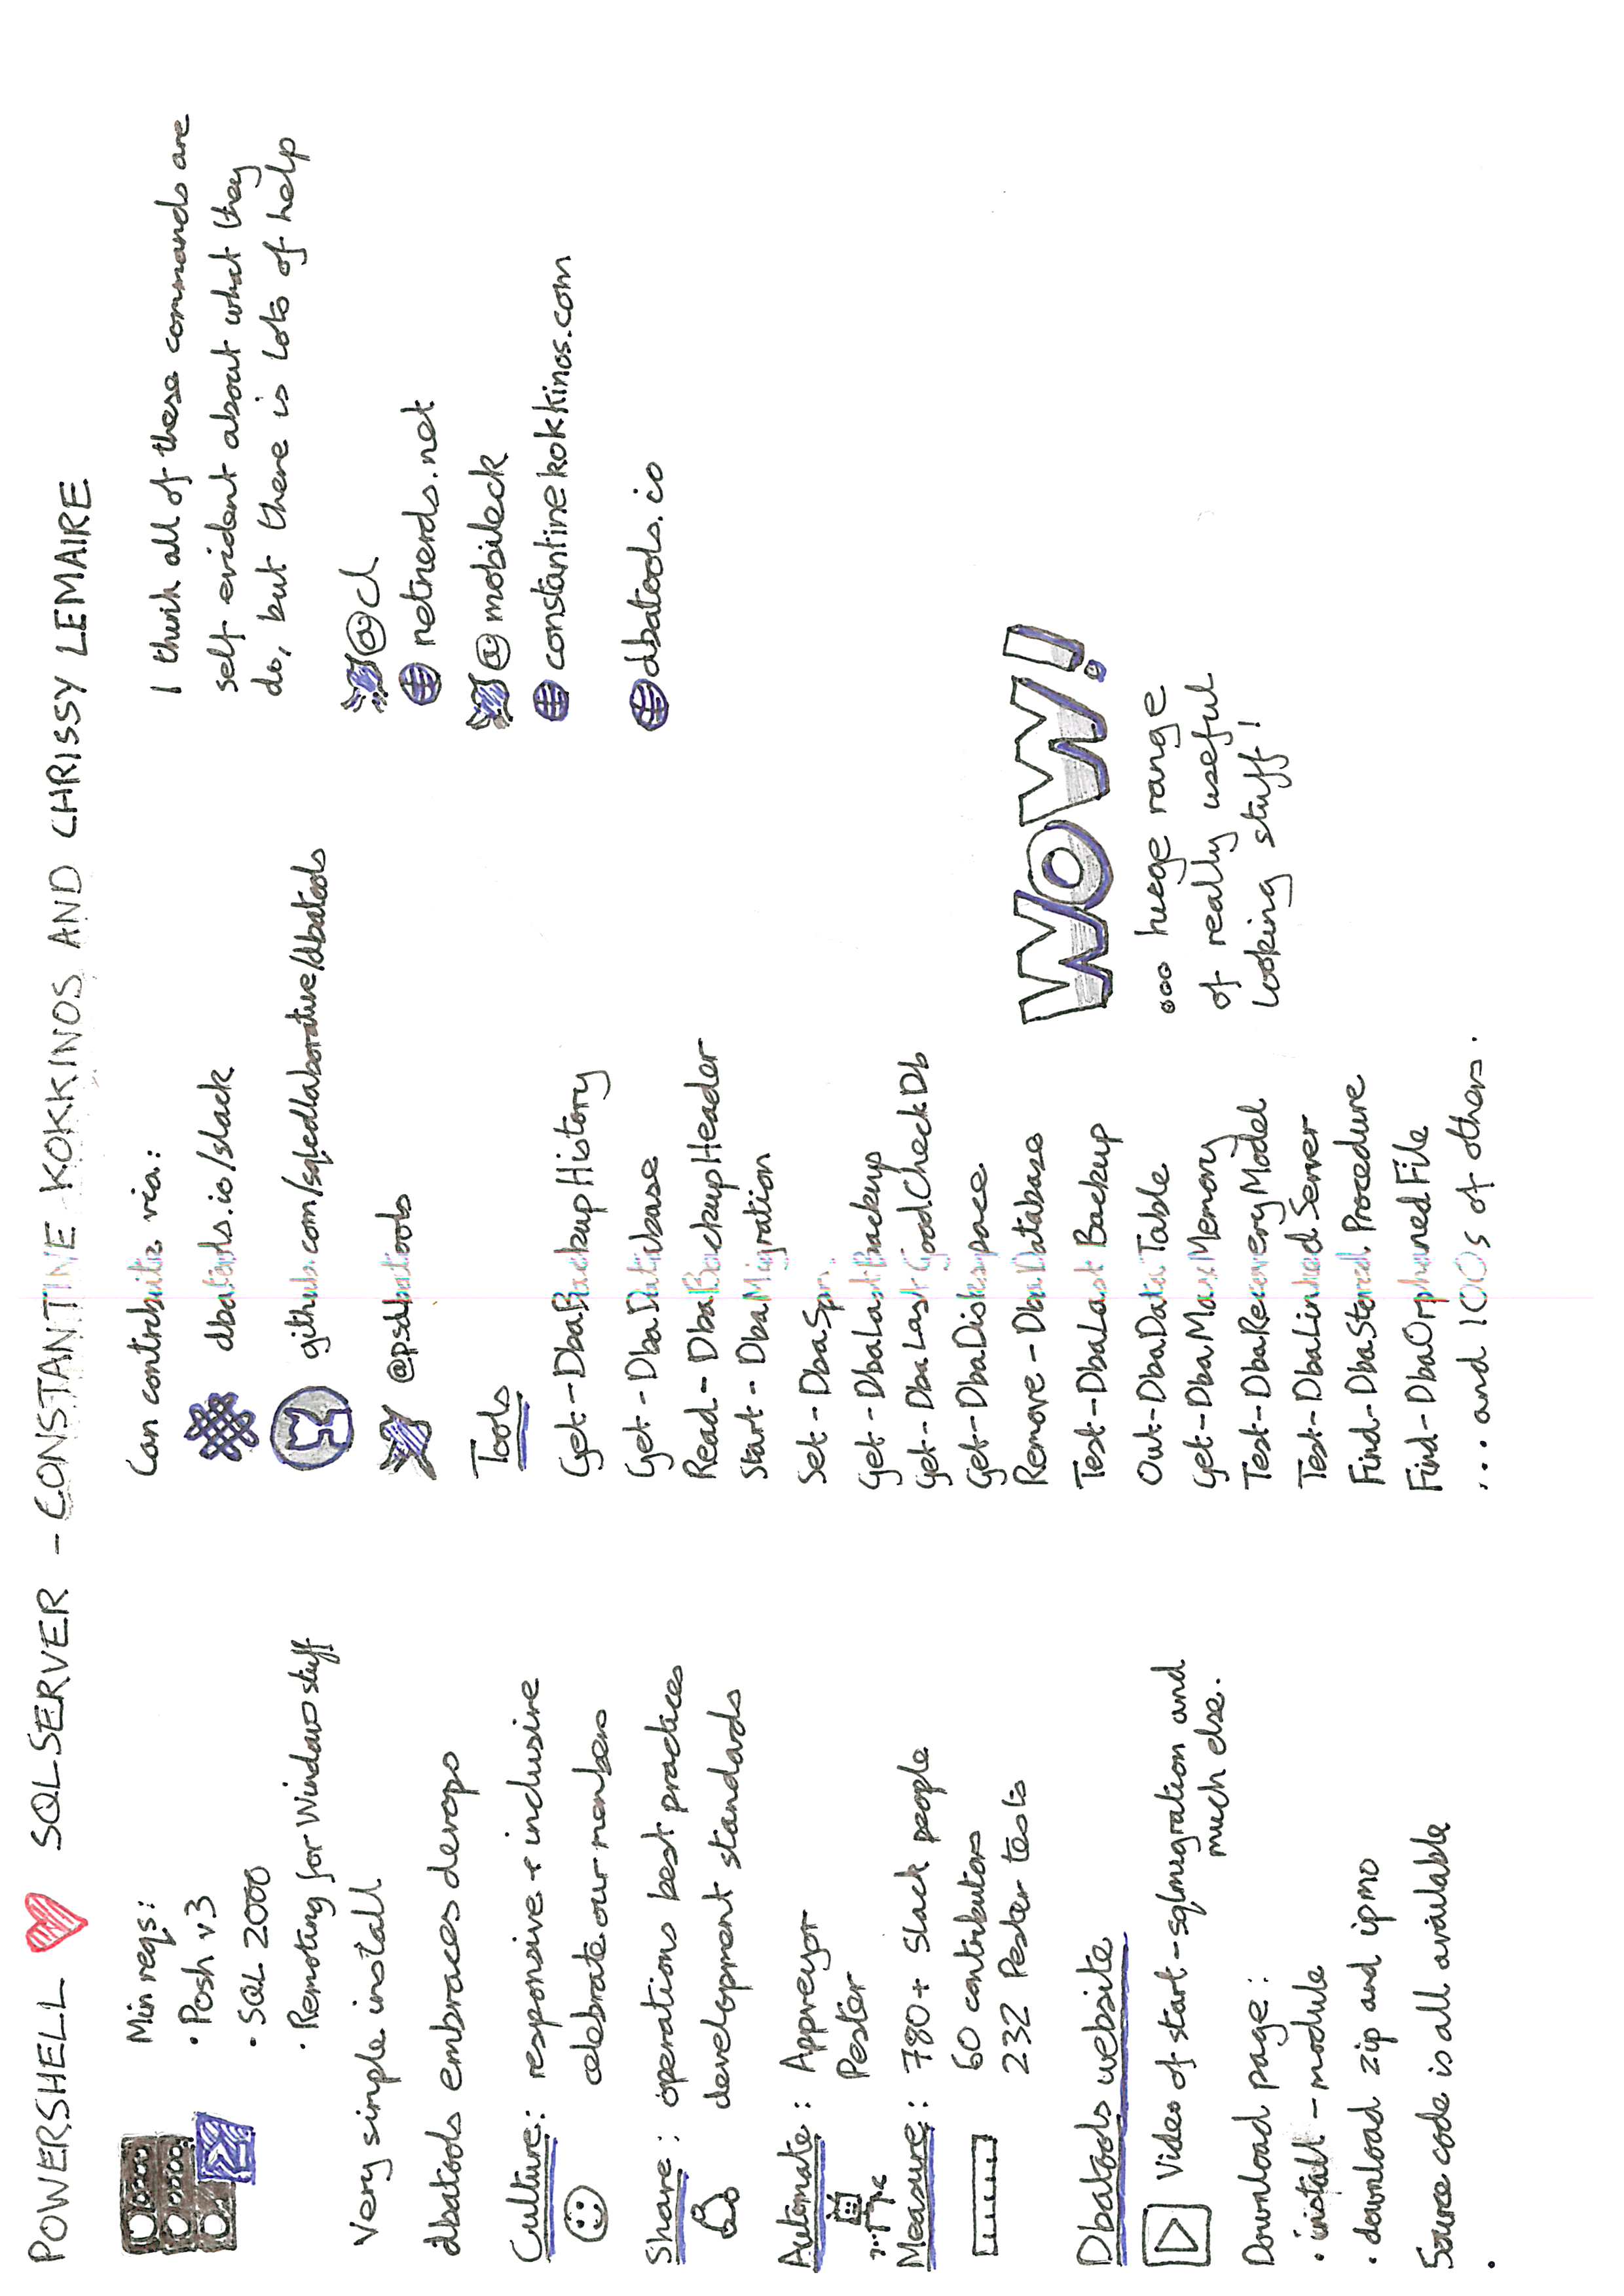 POWERSHELL ❤ SQLSERVER - CONSTANTINE KOKKINOS AND CHRISSY LEMAIRE
Min reqs:
• Posh v3
• SQL 2000
• Remoting for Windows stuff
Very simple install
dbatools embraces devops
Culture: responsive + inclusive
celebrate our members
Share: operations best practices
development standards
Automate: Appveyor
Pester
Measure: 780+ Slack people
60 contributors
232 Pester tests
Dbatools website
Video of start-sqlmigration and
much else.
Download page:
• install-module
• download zip and ipmo
Source code is all available
•
Can contribute via:
dbatools.io/slack
github.com/sqlcollaborative/dbatools
@psdbatools
Tools
Get-DbaBackupHistory
Get-DbaDatabase
Read-DbaBackupHeader
Start-DbaMigration
Set-DbaSpn
Get-DbaLastBackup
Get-DbaLastGoodCheckDb
Get-DbaDiskspace
Remove-DbaDatabase
Test-DbaLastBackup
Out-DbaDataTable
Get-DbaMaxMemory
Test-DbaRecoveryModel
Test-DbaLinkedServer
Find-DbaStoredProcedure
Find-DbaOrphanedFile
... and 100s of others.
I think all of these commands are
self evident about what they
do, but there is lots of help
@cl
netnerds.net
@mobileck
constantinekokkinos.com
dbatools.io
WOW!
... huge range
of really useful
looking stuff!